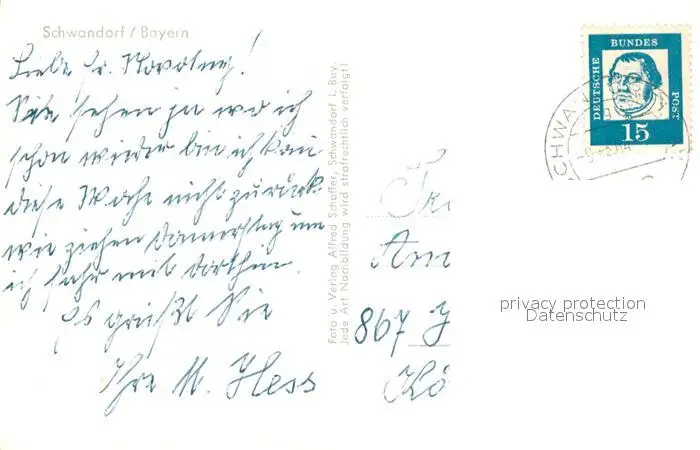 Schwandorf / Bayern
Liebe Fr. Novotny!
Sie sehen ja wo ich
schon wieder bin ich kann
diese Woche nicht zurück.
wir ziehen Donnerstag um
ich fahr mit dorthin.
es grüßt Sie
Ihre M. Hess
Foto u. Verlag Alfred Schaffer, Schwandorf i. Bay.
Jede Art Nachbildung wird strafrechtlich verfolgt!
DEUTSCHE
BUNDES
POST
15
SCHWA
867
Kö
privacy protection
Datenschutz